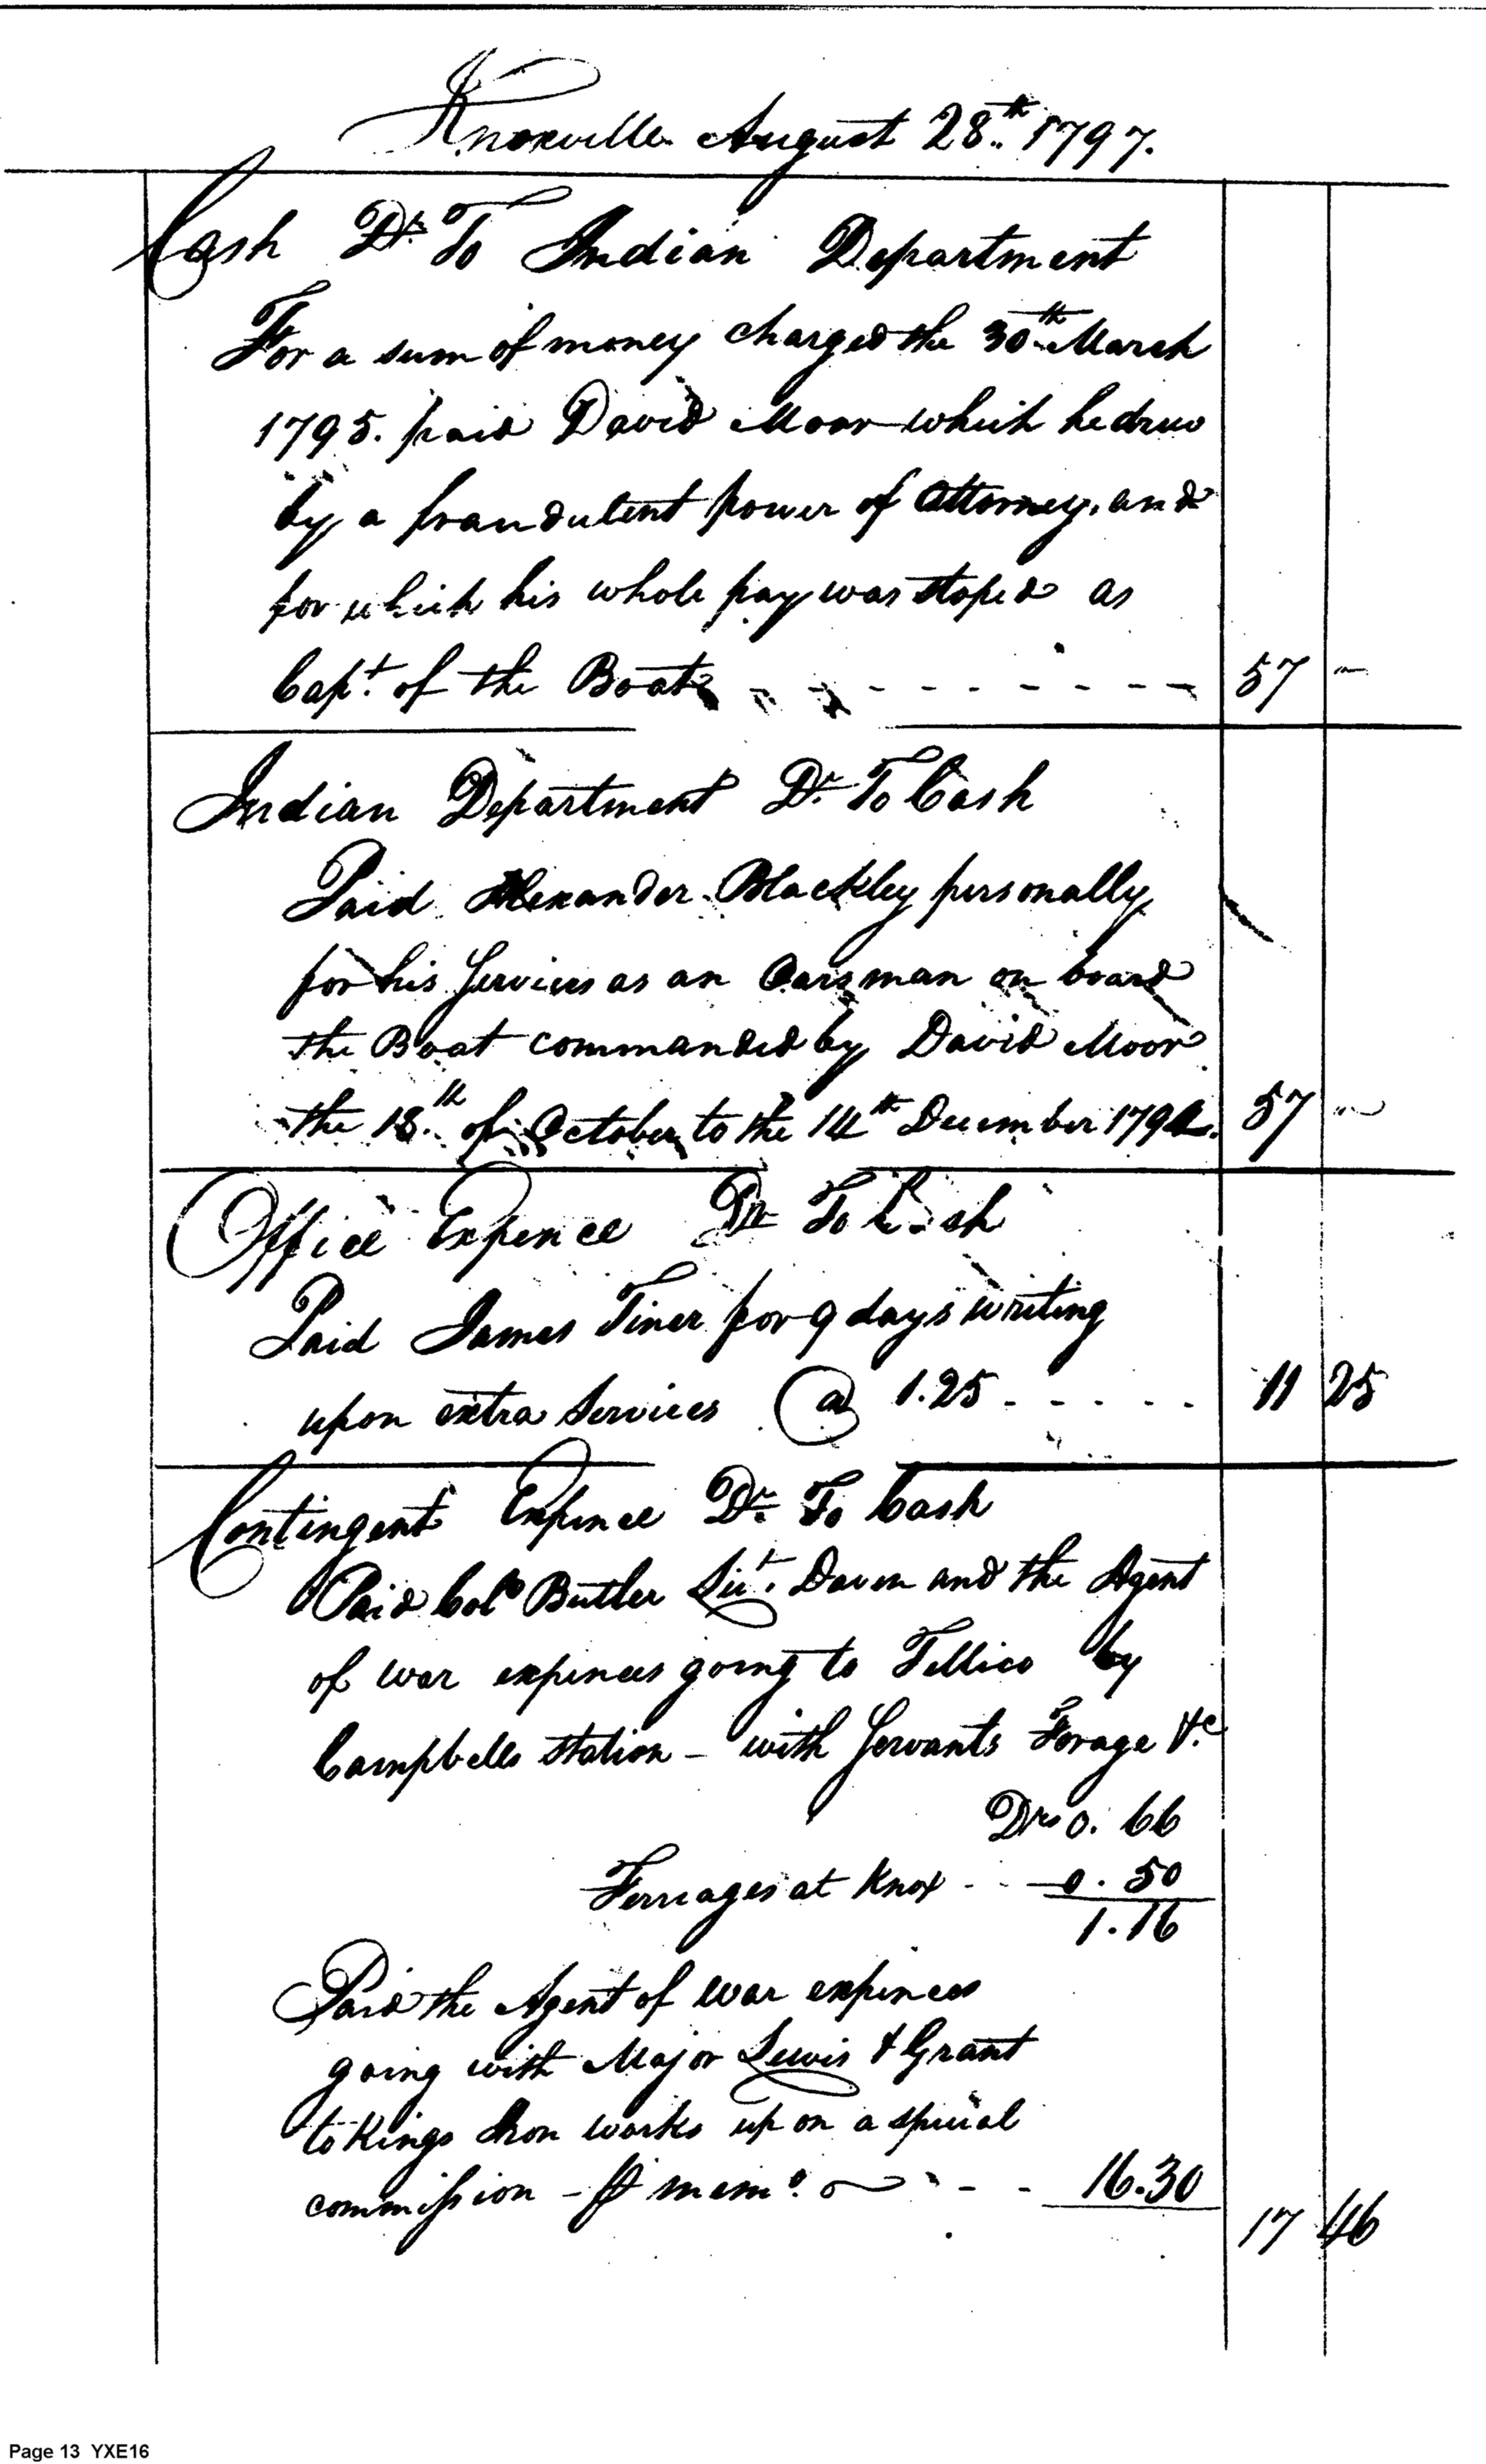 Knoxville August 28th 1797.
Cash Dr. To Indian Department
For a sum of money charged the 30th March
1795. paid David Moor which he drew
by a fraudulent power of Attorney, and
for which his whole pay was stoped as
Capt. of the Boat - - - - - - - - - 57 -
Indian Department Dr. To Cash
Paid Alexander Blackley personally
for his Services as an Oarsman on board
the Boat commanded by David Moor
the 18th of October to the 14th December 1794. 57 -
Office Expence Dr To Cash
Paid James Finer for 9 days writing
upon extra Services @ 1.25 - - - - - 11 25
Contingent Expence Dr. To Cash
Paid Colo Butler Liut. Daven and the Agent
of war expences going to Tellico by
Campbells station - with Servants Forage &c
Drs 0. 66
Ferriages at Knox - - 0. 50
1.16
Paid the Agent of war expences
going with Major Lewis & Grant
to Kings Iron works upon a special
commission - pr memo. - - 16.30
17 46
Page 13 YXE16